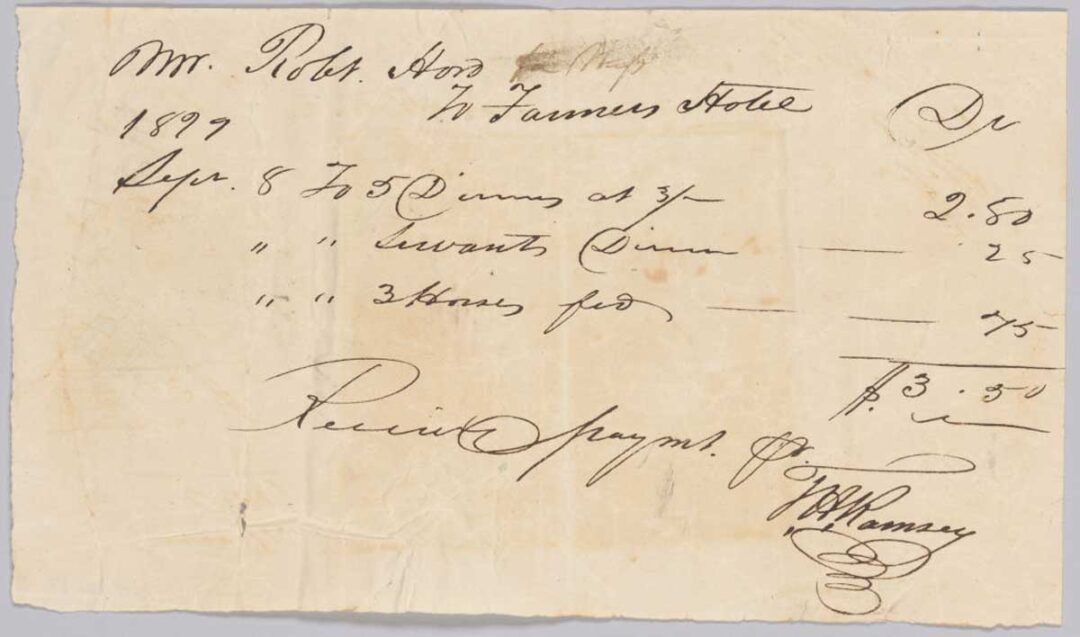 Mr. Robt. Hord
To Farmers Hotel Dr
1829
Sept. 8 To 5 Dinners at 3/- 2.50
" " Servants Dinner 25
" " 3 Horses fed 75
$. 3.50
Received paymt.
Ramsey